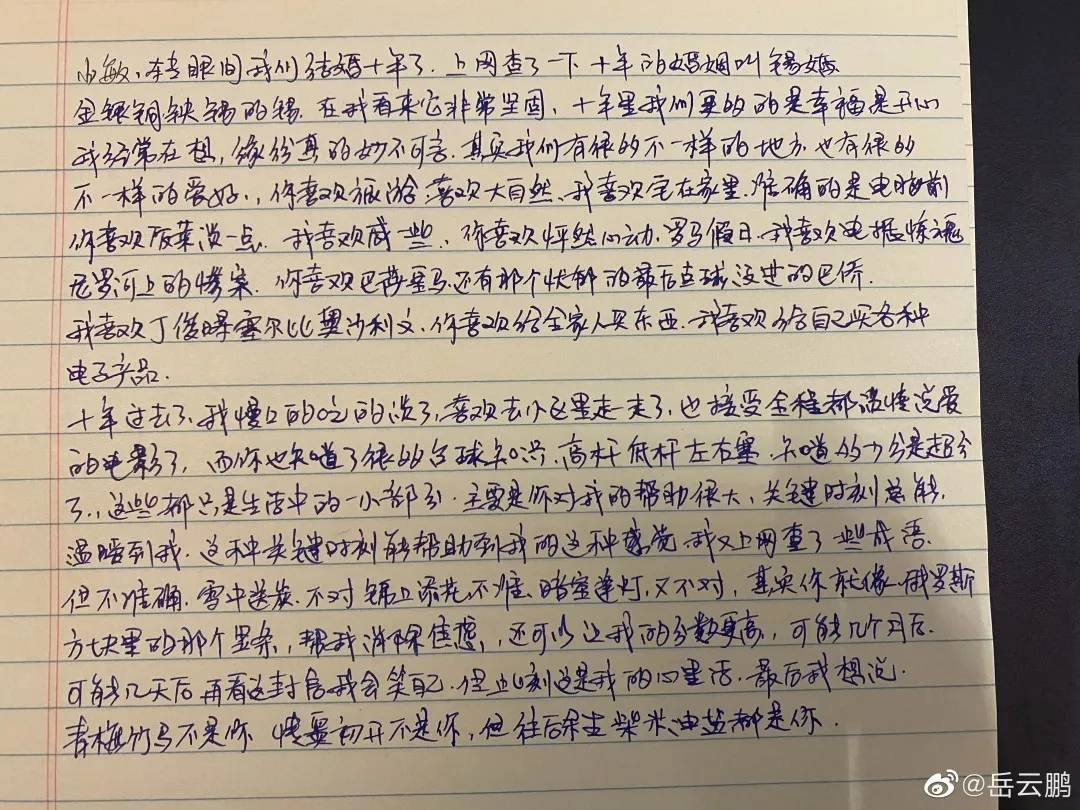 小敏,转眼间我们结婚十年了.上网查了一下十年的婚姻叫锡婚
金银铜铁锡的锡.在我看来它非常坚固,十年里我们更多的是幸福是开心
我经常在想,缘份真的妙不可言.其实我们有很多不一样的地方也有很多
不一样的爱好.,你喜欢旅游喜欢大自然、我喜欢宅在家里.准确的是电脑前
你喜欢饭菜淡一点.我喜欢咸一些、你喜欢怦然心动.罗马假日.我喜欢电锯惊魂
尼罗河上的惨案.你喜欢巴蒂塞马.还有那个忧郁的最后点球没进的巴乔.
我喜欢丁俊晖塞尔比奥沙利文.你喜欢给全家人买东西.我喜欢给自己买各种
电子产品.
十年过去了.我慢慢的吃的淡了,喜欢去小区里走一走了,也接受全程都谈情说爱
的电影了,而你也知道了很多台球知识.高杆低杆左右塞.知道多少分是超分
了.,这些都只是生活中的一小部分.主要是你对我的帮助很大、关键时刻总能.
温暖到我.这种关键时刻能帮助到我的这种感觉.我又上网查了些成语.
但不准确.雪中送炭.不对锦上添花.不准.暗室逢灯,又不对,其实你就像俄罗斯
方块里的那个竖条,帮我消除焦虑,还可以让我的分数更高,可能几个月后.
可能几天后再看这封信我会笑自己.但此刻这是我的心生活.最后我想说.
青梅竹马不是你 情窦初开不是你,但往后余生柴米油盐都是你.
@岳云鹏